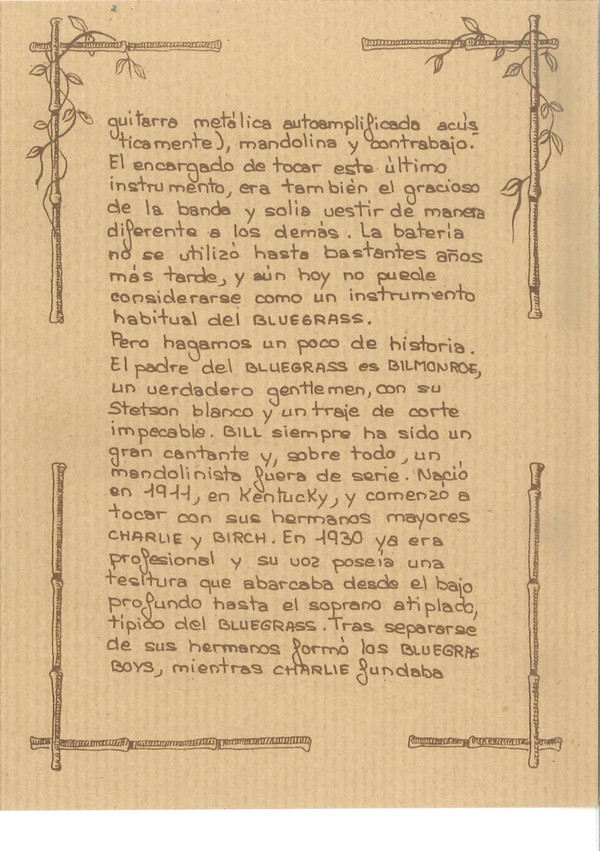 guitarra metálica autoamplificada acús
ticamente), mandolina y contrabajo.
El encargado de tocar este último
instrumento, era también el gracioso
de la banda y solía vestir de manera
diferente a los demás. La batería
no se utilizó hasta bastantes años
más tarde, y aún hoy no puede
considerarse como un instrumento
habitual del BLUEGRASS.
Pero hagamos un poco de historia.
El padre del BLUEGRASS es BILMONROE,
un verdadero gentlemen, con su
Stetson blanco y un traje de corte
impecable. BILL siempre ha sido un
gran cantante y, sobre todo, un
mandolinista fuera de serie. Nació
en 1911, en Kentucky, y comenzó a
tocar con sus hermanos mayores
CHARLIE y BIRCH. En 1930 ya era
profesional y su voz poseía una
tesitura que abarcaba desde el bajo
profundo hasta el soprano atiplado,
típico del BLUEGRASS. Tras separarse
de sus hermanos formó los BLUEGRAS
BOYS, mientras CHARLIE fundaba